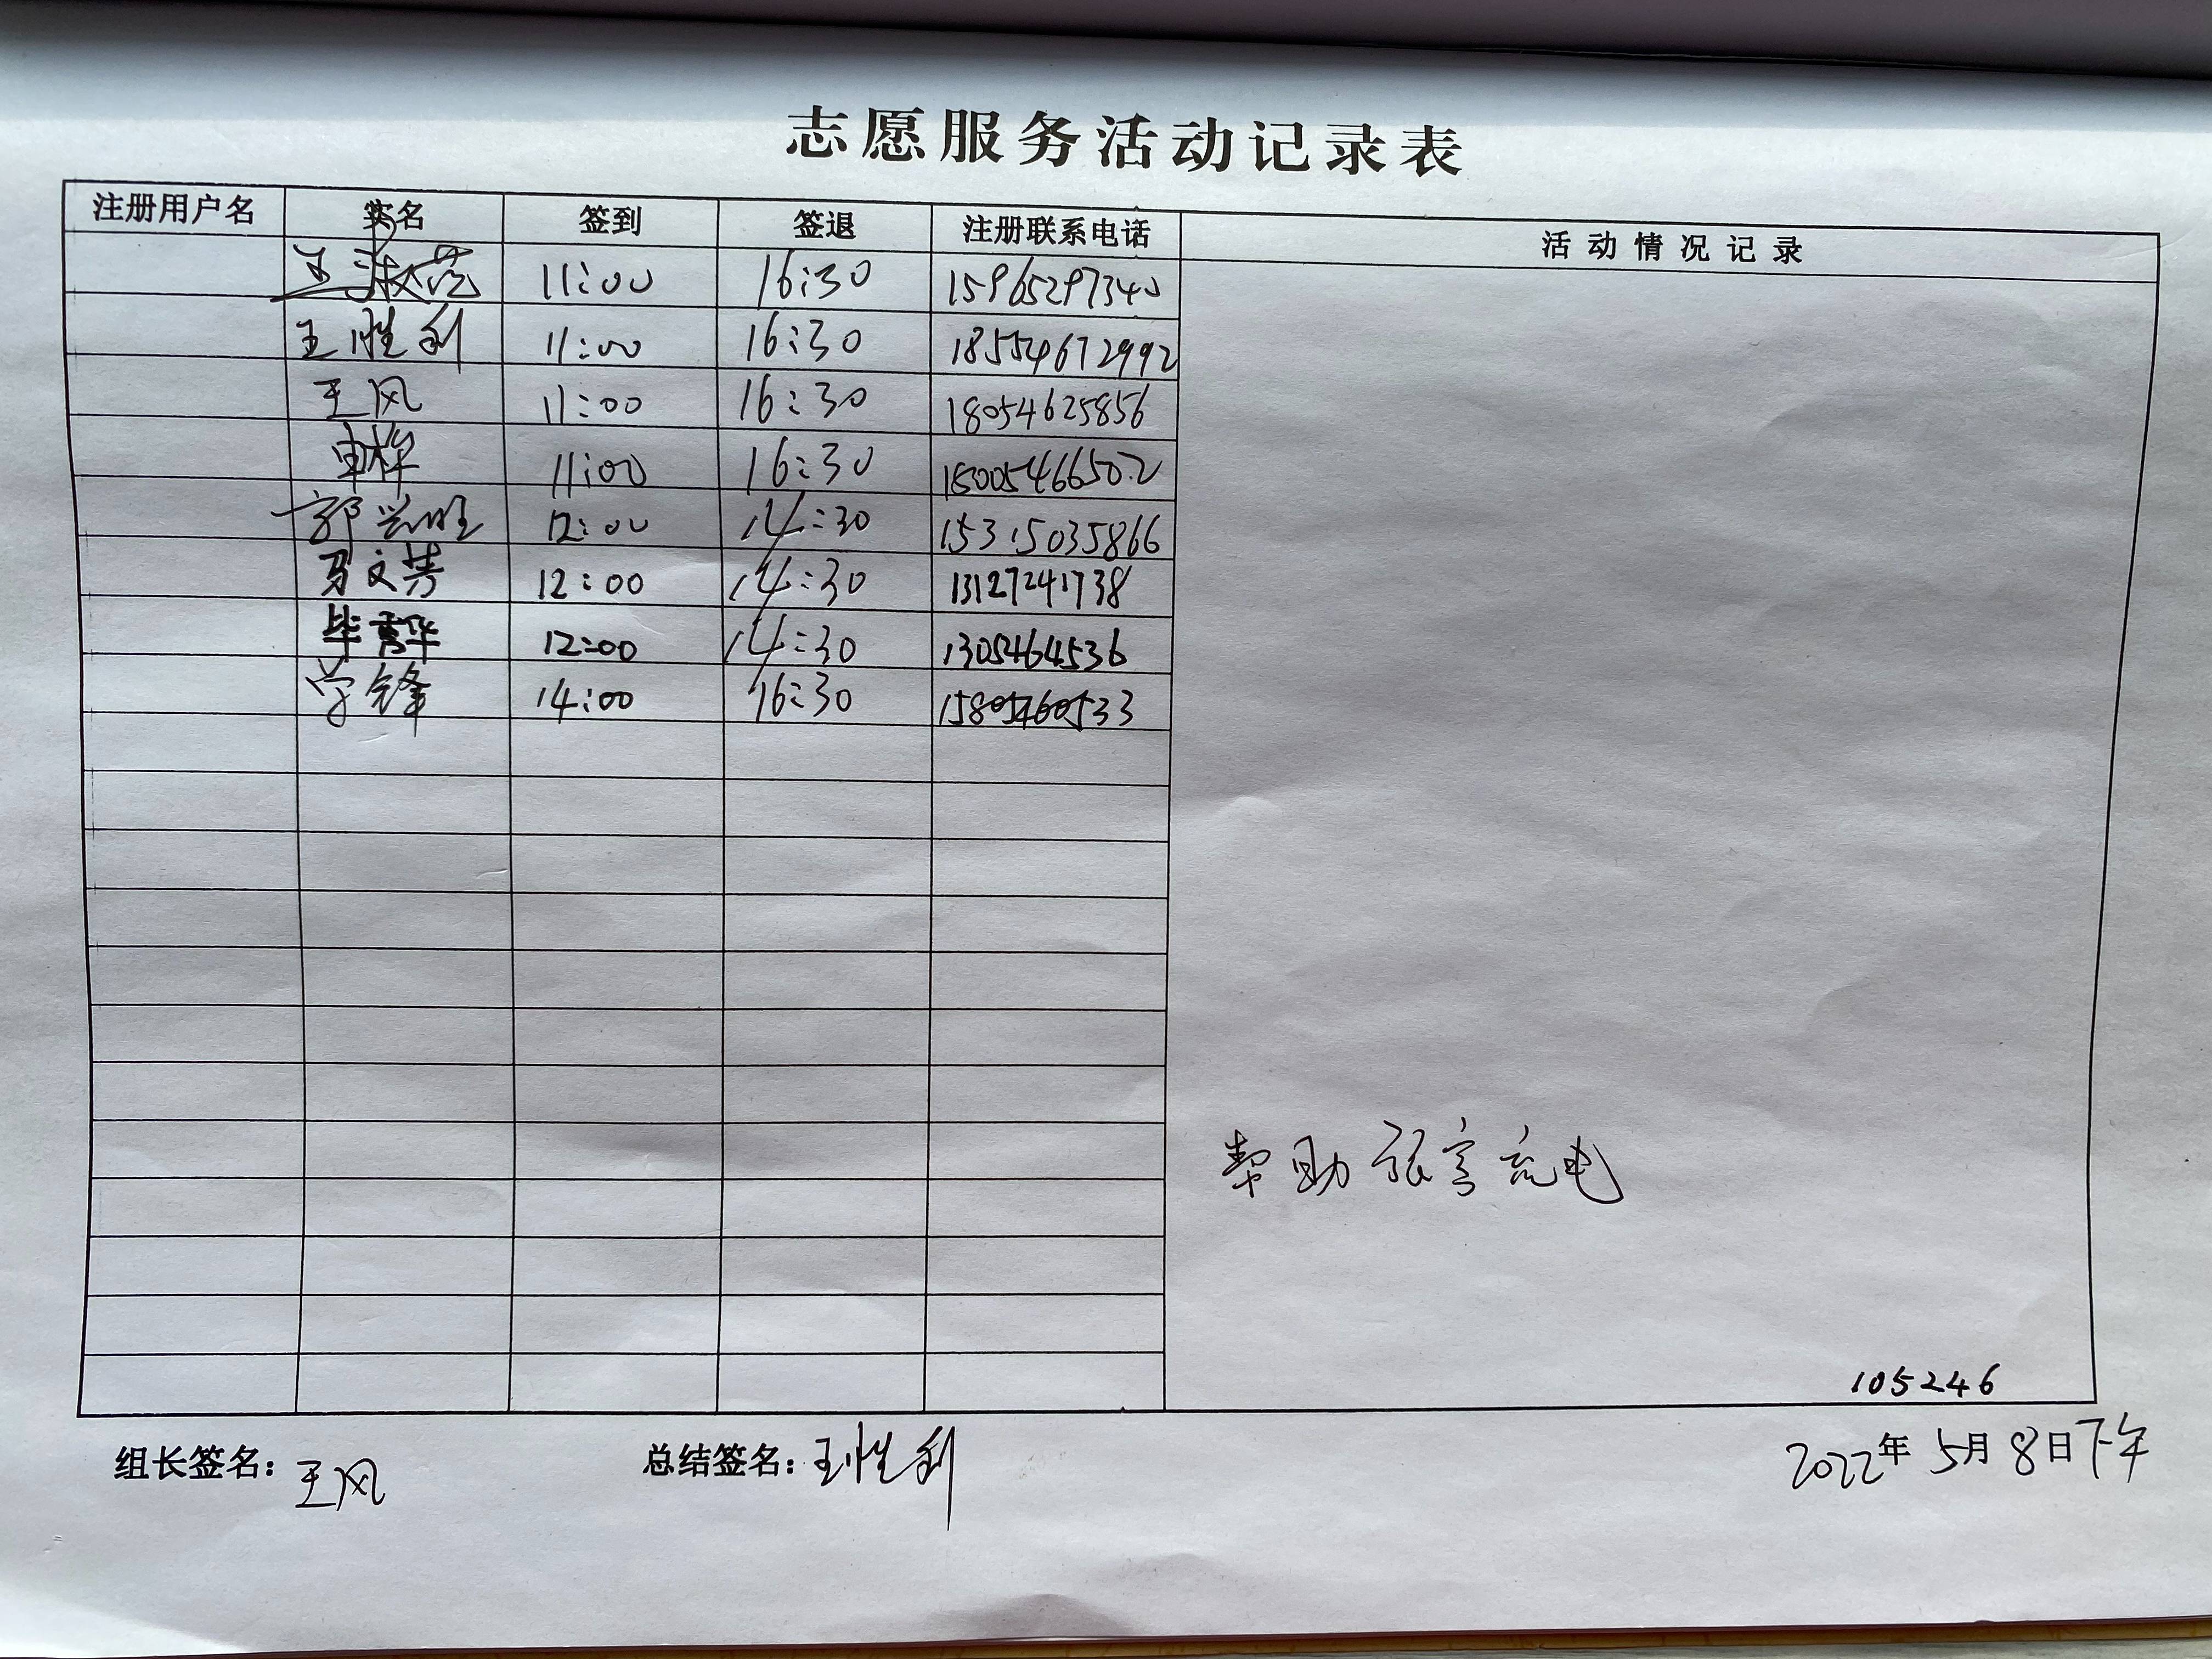 志愿服务活动记录表
注册用户名 实名 签到 签退 注册联系电话 活动情况记录
王淑范 11:00 16:30 15965297340
王胜利 11:00 16:30 18554672992
王风 11:00 16:30 18054625856
11:00 16:30 15005466502
郭兴旺 12:00 14:30 15315035866
马文芳 12:00 14:30 13127241738
毕秀华 12:00 14:30 1305464536
学锋 14:00 16:30 15805460533
帮助 充电
105246
组长签名：王风 总结签名：王胜利 2022年5月8日下午